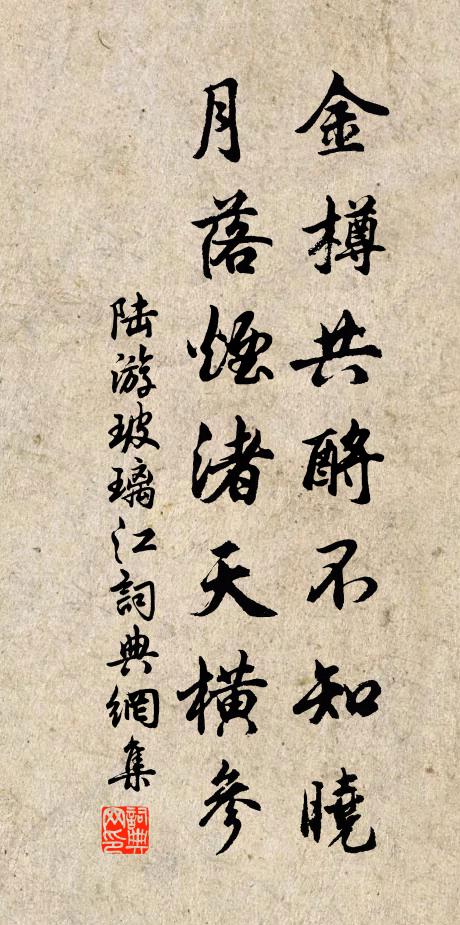 金樽共酹不知曉
月落煙渚天橫參
陆游玻璃江詞典網集
詞典网印